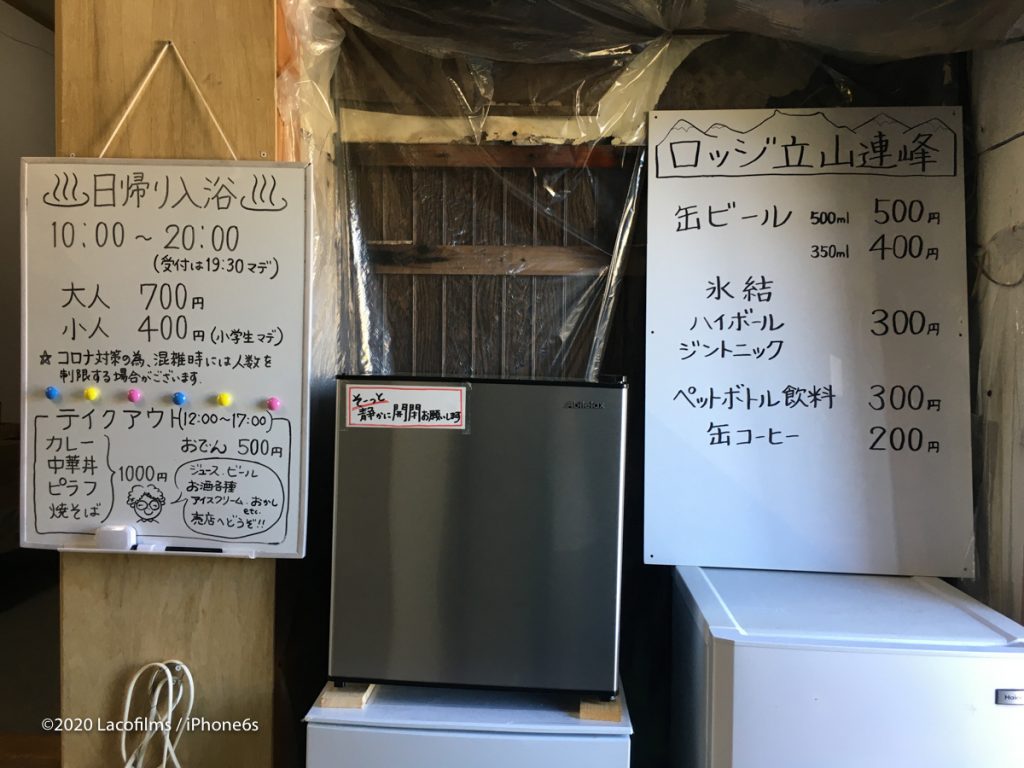 日帰り入浴
10:00～20:00
(受付は19:30マデ)
大人 700円
小人 400円(小学生マデ)
☆コロナ対策の為、混雑時には人数を
制限する場合がございます.
テイクアウト(12:00～17:00)
カレー
中華丼
ピラフ
焼そば
1000円
おでん 500円
ジュース.ビール
お酒各種
アイスクリーム.おかし
etc.
売店へどうぞ!!
そーっと
静かに開閉お願いします
Abitelax
ロッジ立山連峰
缶ビール 500ml 500円
350ml 400円
氷結
ハイボール 300円
ジントニック
ペットボトル飲料 300円
缶コーヒー 200円
©2020 Lacofilms / iPhone6s